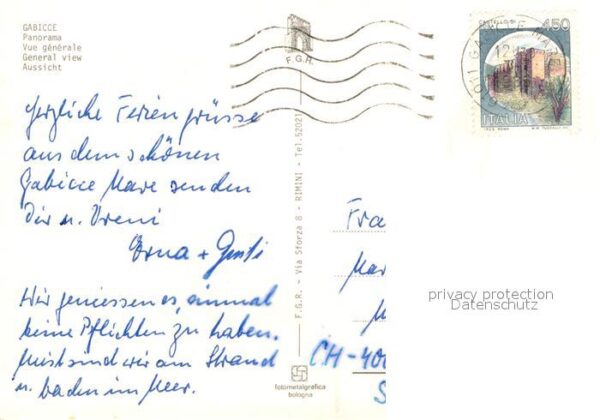 GABICCE
Panorama
Vue générale
General view
Aussicht
F.G.R.
CASTELLO DI
450
ITALIA
GABICCE MARE
Herzliche Feriengrüsse
aus dem schönen
Gabicce Mare senden
Dir u. Vreni
Erna + Gusti
Wir geniessen es, einmal
keine Pflichten zu haben.
Meist sind wir am Strand
u. baden im Meer.
F.G.R. - Via Sforza 8 - RIMINI - Tel. 52021
fotometalgrafica
bologna
Fra
Mar
CH-400
S
privacy protection
Datenschutz